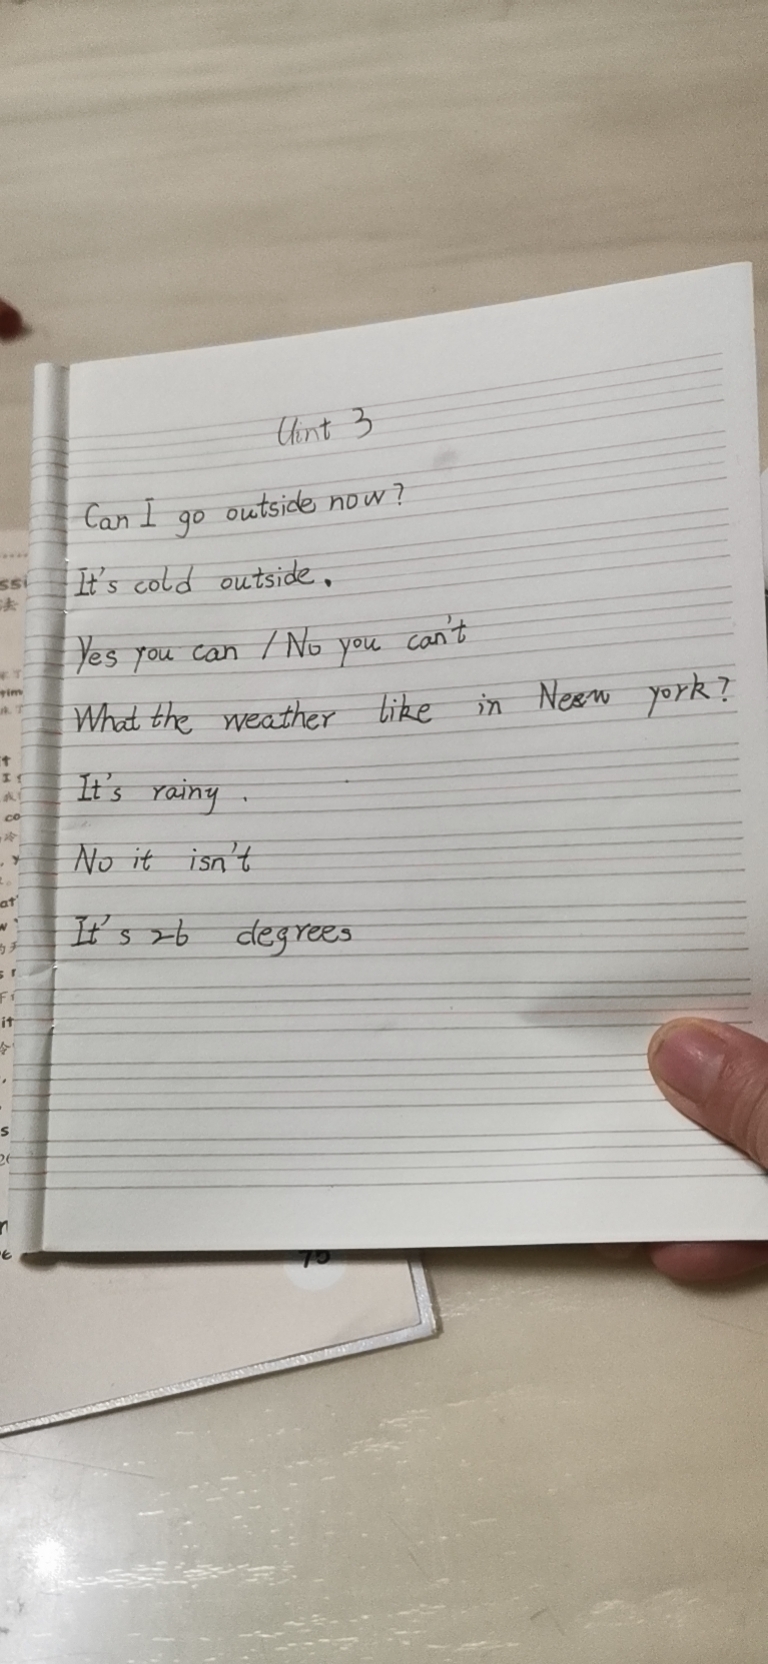 Uint 3
Can I go outside now?
It's cold outside.
Yes you can / No you can't
What the weather like in New york?
It's rainy.
No it isn't
It's 26 degrees
75